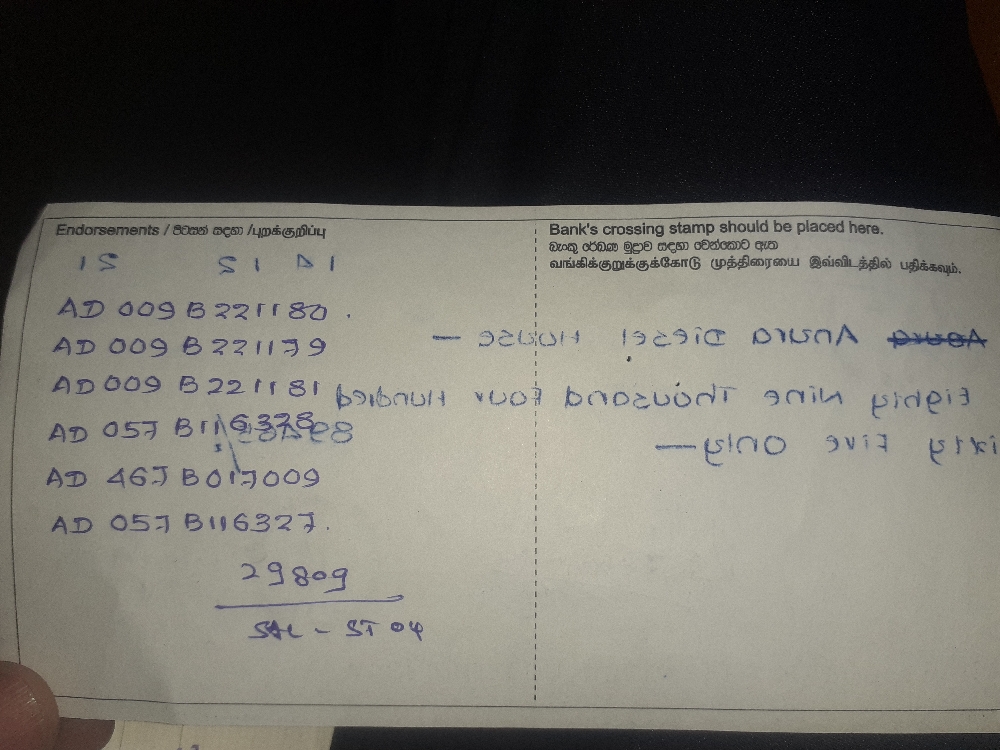 Endorsements / පිටසන් සඳහා /புறக்குறிப்பு
Bank's crossing stamp should be placed here.
බැංකු රේඛණ මුද්‍රාව සඳහා වෙන්කොට ඇත
வங்கிக்குறுக்குக்கோடு முத்திரையை இவ்விடத்தில் பதிக்கவும்.
AD 009 B 221180 .
AD 009 B 221179
AD 009 B 221181
AD 057 B116328
AD 467 B017009
AD 057 B116327.
29809
SAL - ST 04
Diesel House —
Eighty Nine Thousand Four Hundred
Five Only —